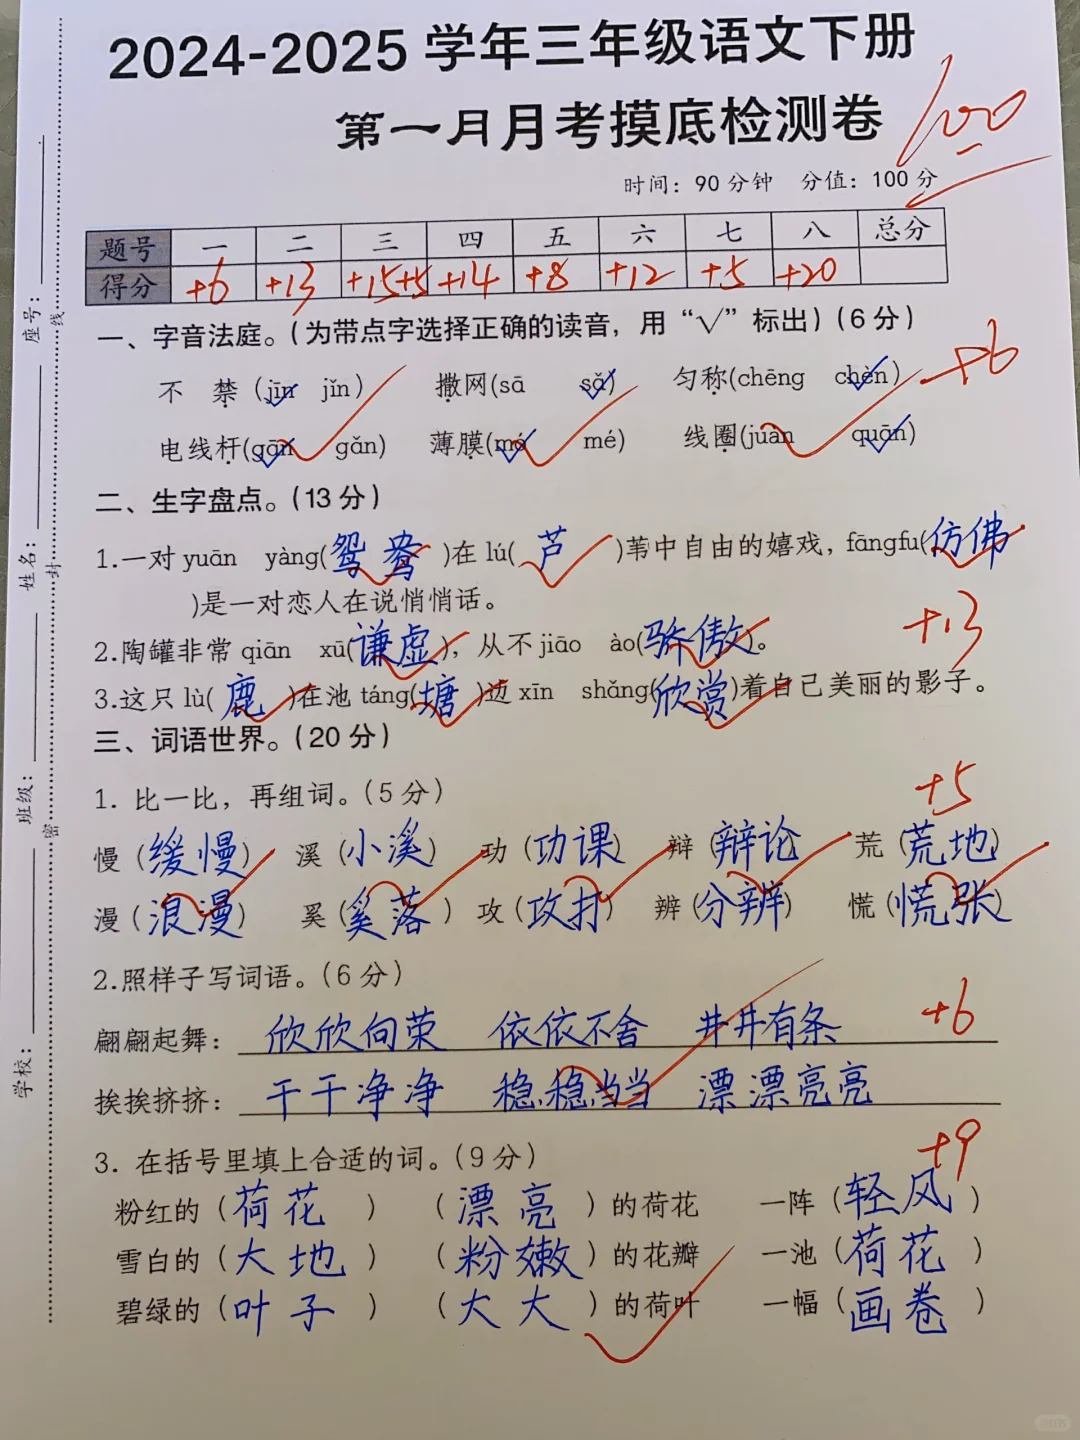 2024-2025学年三年级语文下册
第一月月考摸底检测卷
100
时间：90分钟 分值：100分
题号 一 二 三 四 五 六 七 八 总分
得分 +6 +13 +15+5 +14 +8 +12 +5 +20
一、字音法庭。（为带点字选择正确的读音，用“√”标出）（6分）
+6
不 禁（jīn jǐn） 撒网(sā sǎ) 匀称(chēng chèn)
电线杆(gān gǎn) 薄膜(mó mé) 线圈(juān quān)
二、生字盘点。（13分）
1.一对yuān yàng(鸳鸯)在lú(芦)苇中自由的嬉戏，fāngfu(仿佛
)是一对恋人在说悄悄话。
+13
2.陶罐非常qiān xū(谦虚)，从不jiāo ào(骄傲)。
3.这只lù(鹿)在池táng(塘)边xīn shǎng(欣赏)着自己美丽的影子。
三、词语世界。（20分）
1. 比一比，再组词。（5分）
+5
慢（缓慢） 溪（小溪） 功（功课） 辩（辩论） 荒（荒地）
漫（浪漫） 奚（奚落） 攻（攻打） 辨（分辨） 慌（慌张）
2.照样子写词语。（6分）
+6
翩翩起舞：欣欣向荣 依依不舍 井井有条
挨挨挤挤：干干净净 稳稳当当 漂漂亮亮
3. 在括号里填上合适的词。（9分）
+9
粉红的（荷花） （漂亮）的荷花 一阵（轻风）
雪白的（大地） （粉嫩）的花瓣 一池（荷花）
碧绿的（叶子） （大大）的荷叶 一幅（画卷）
学校： 班级： 姓名： 座号：
密 封 线